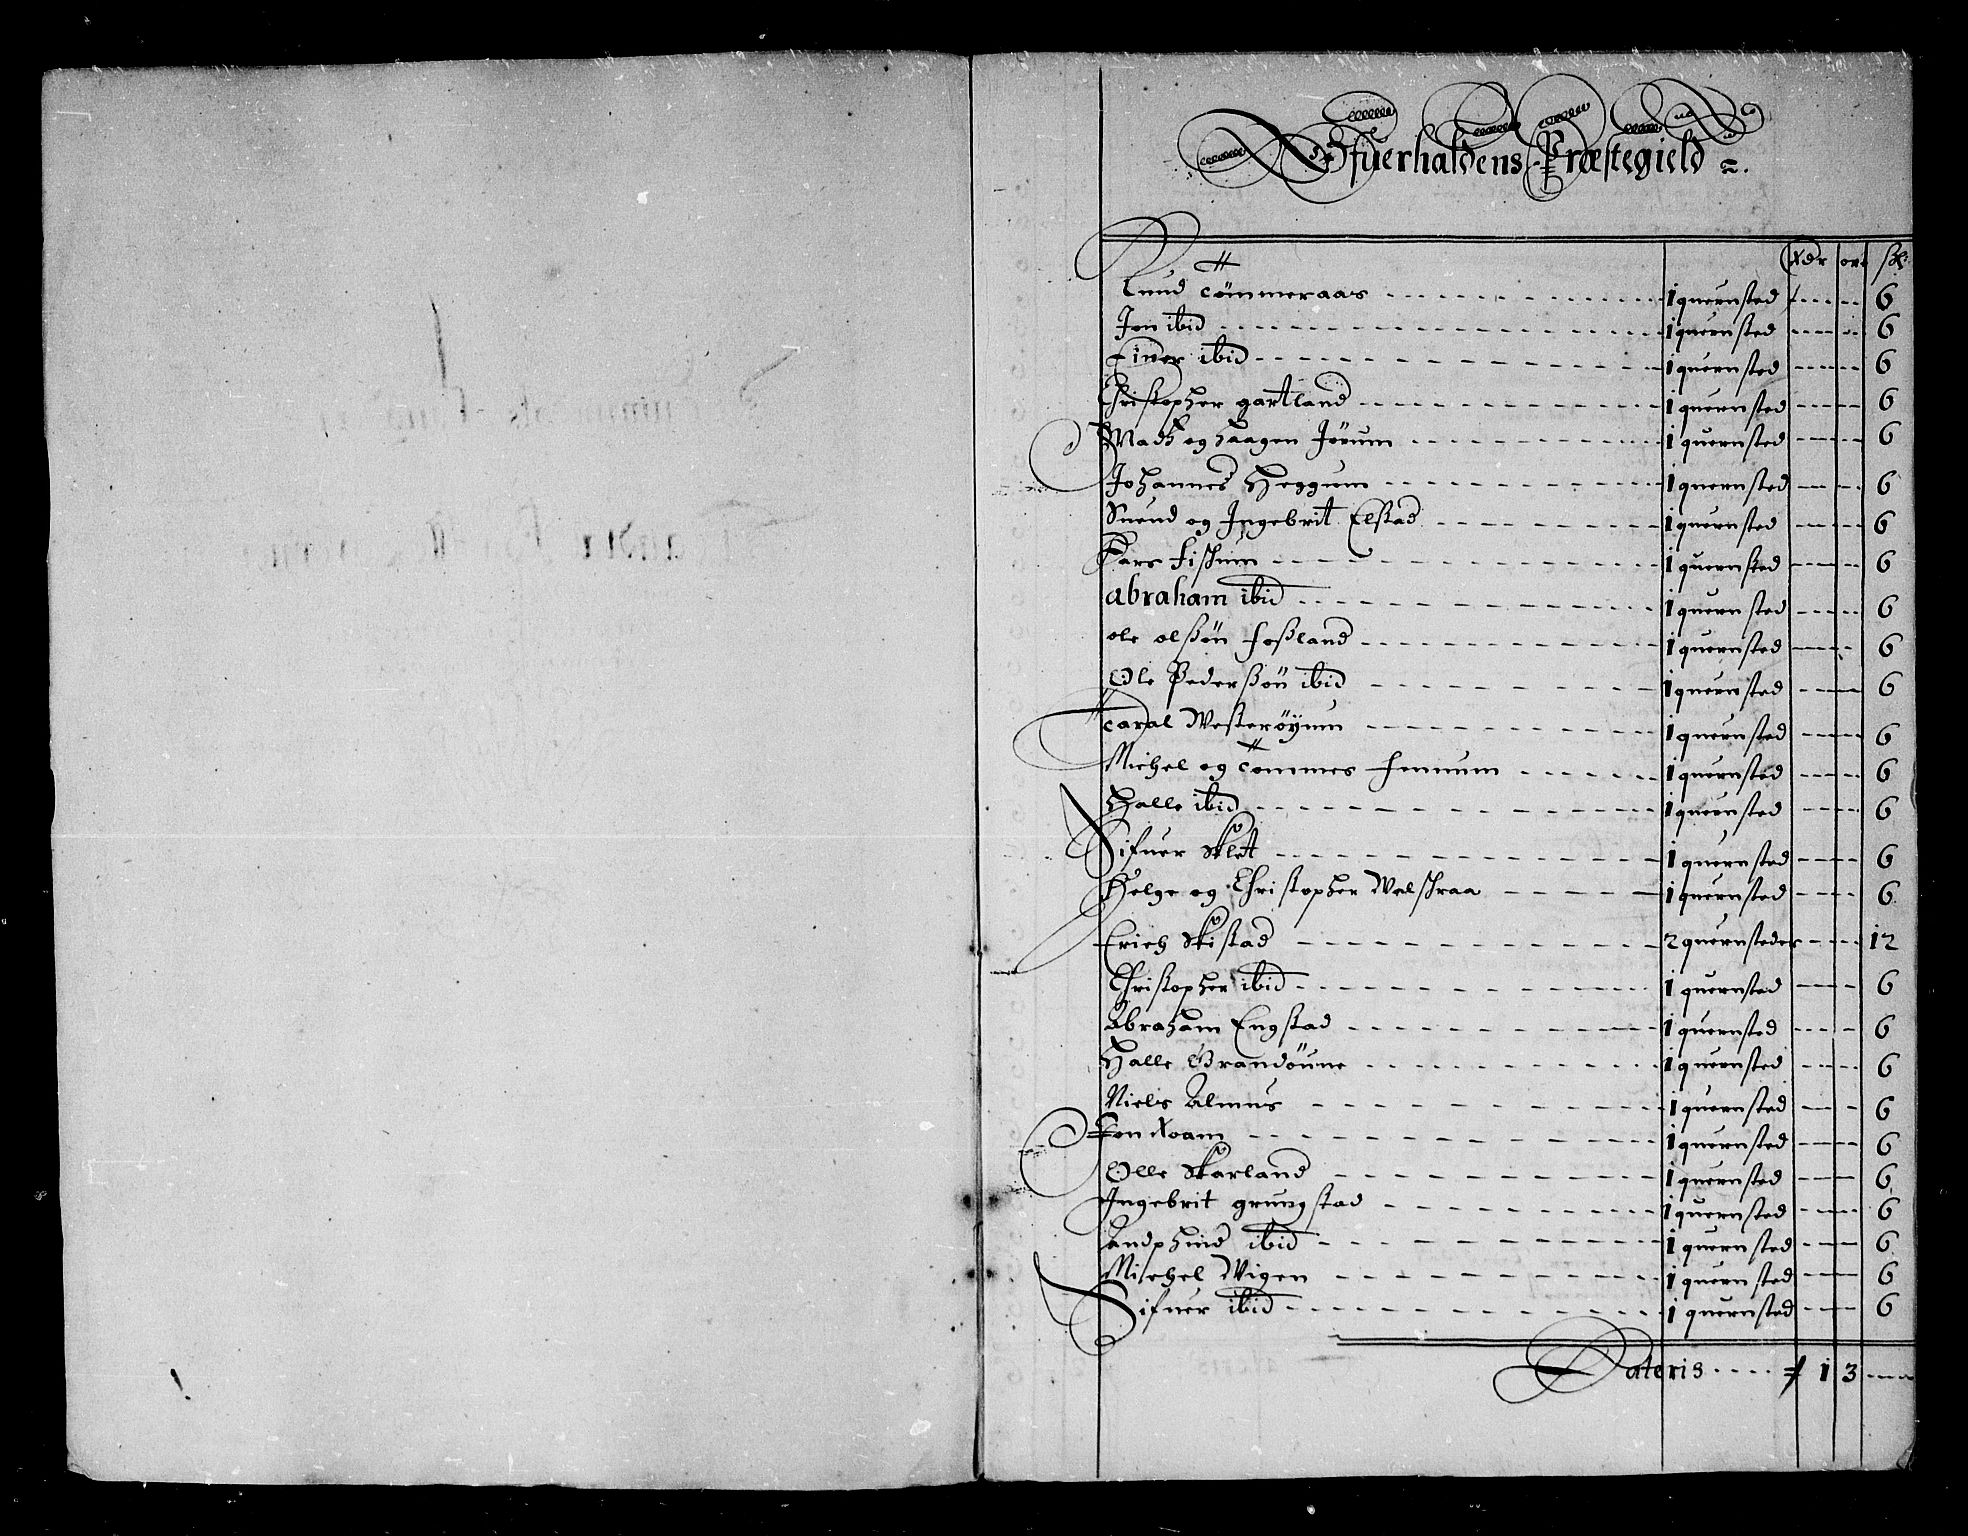 Offuerhaldens Præstegield
Rdr ort sk:
Lund Tømmeraas 1 quernsted 6
Jon ibid 1 quernsted 6
Einer ibid 1 quernsted 6
Christopher gartland 1 quernsted 6
Madtz og Haagen Jørum 1 quernsted 6
Johannes Heggum 1 quernsted 6
Suend og Ingebrit Elstad 1 quernsted 6
Lars Fiskum 1 quernsted 6
Abraham ibid 1 quernsted 6
ole olssøn Fossland 1 quernsted 6
Ole Pederssøn ibid 1 quernsted 6
Taral Westerøyum 1 quernsted 6
Michel og Tommes Femmum 1 quernsted 6
Halle ibid 1 quernsted 6
Sifuer Sklet 1 quernsted 6
Helge og Christopher Walskraa 1 quernsted 6
Erich Skistad 2 quernsteder 12
Christopher ibid 1 quernsted 6
Abraham Engstad 1 quernsted 6
Halle Brandøune 1 quernsted 6
Niels Almus 1 quernsted 6
Jon Roam 1 quernsted 6
Olle Skarland 1 quernsted 6
Ingebrit grungstad 1 quernsted 6
Andphind ibid 1 quernsted 6
Michel Wigen 1 quernsted 6
Sifuer ibid 1 quernsted 6
Lateris 1 3